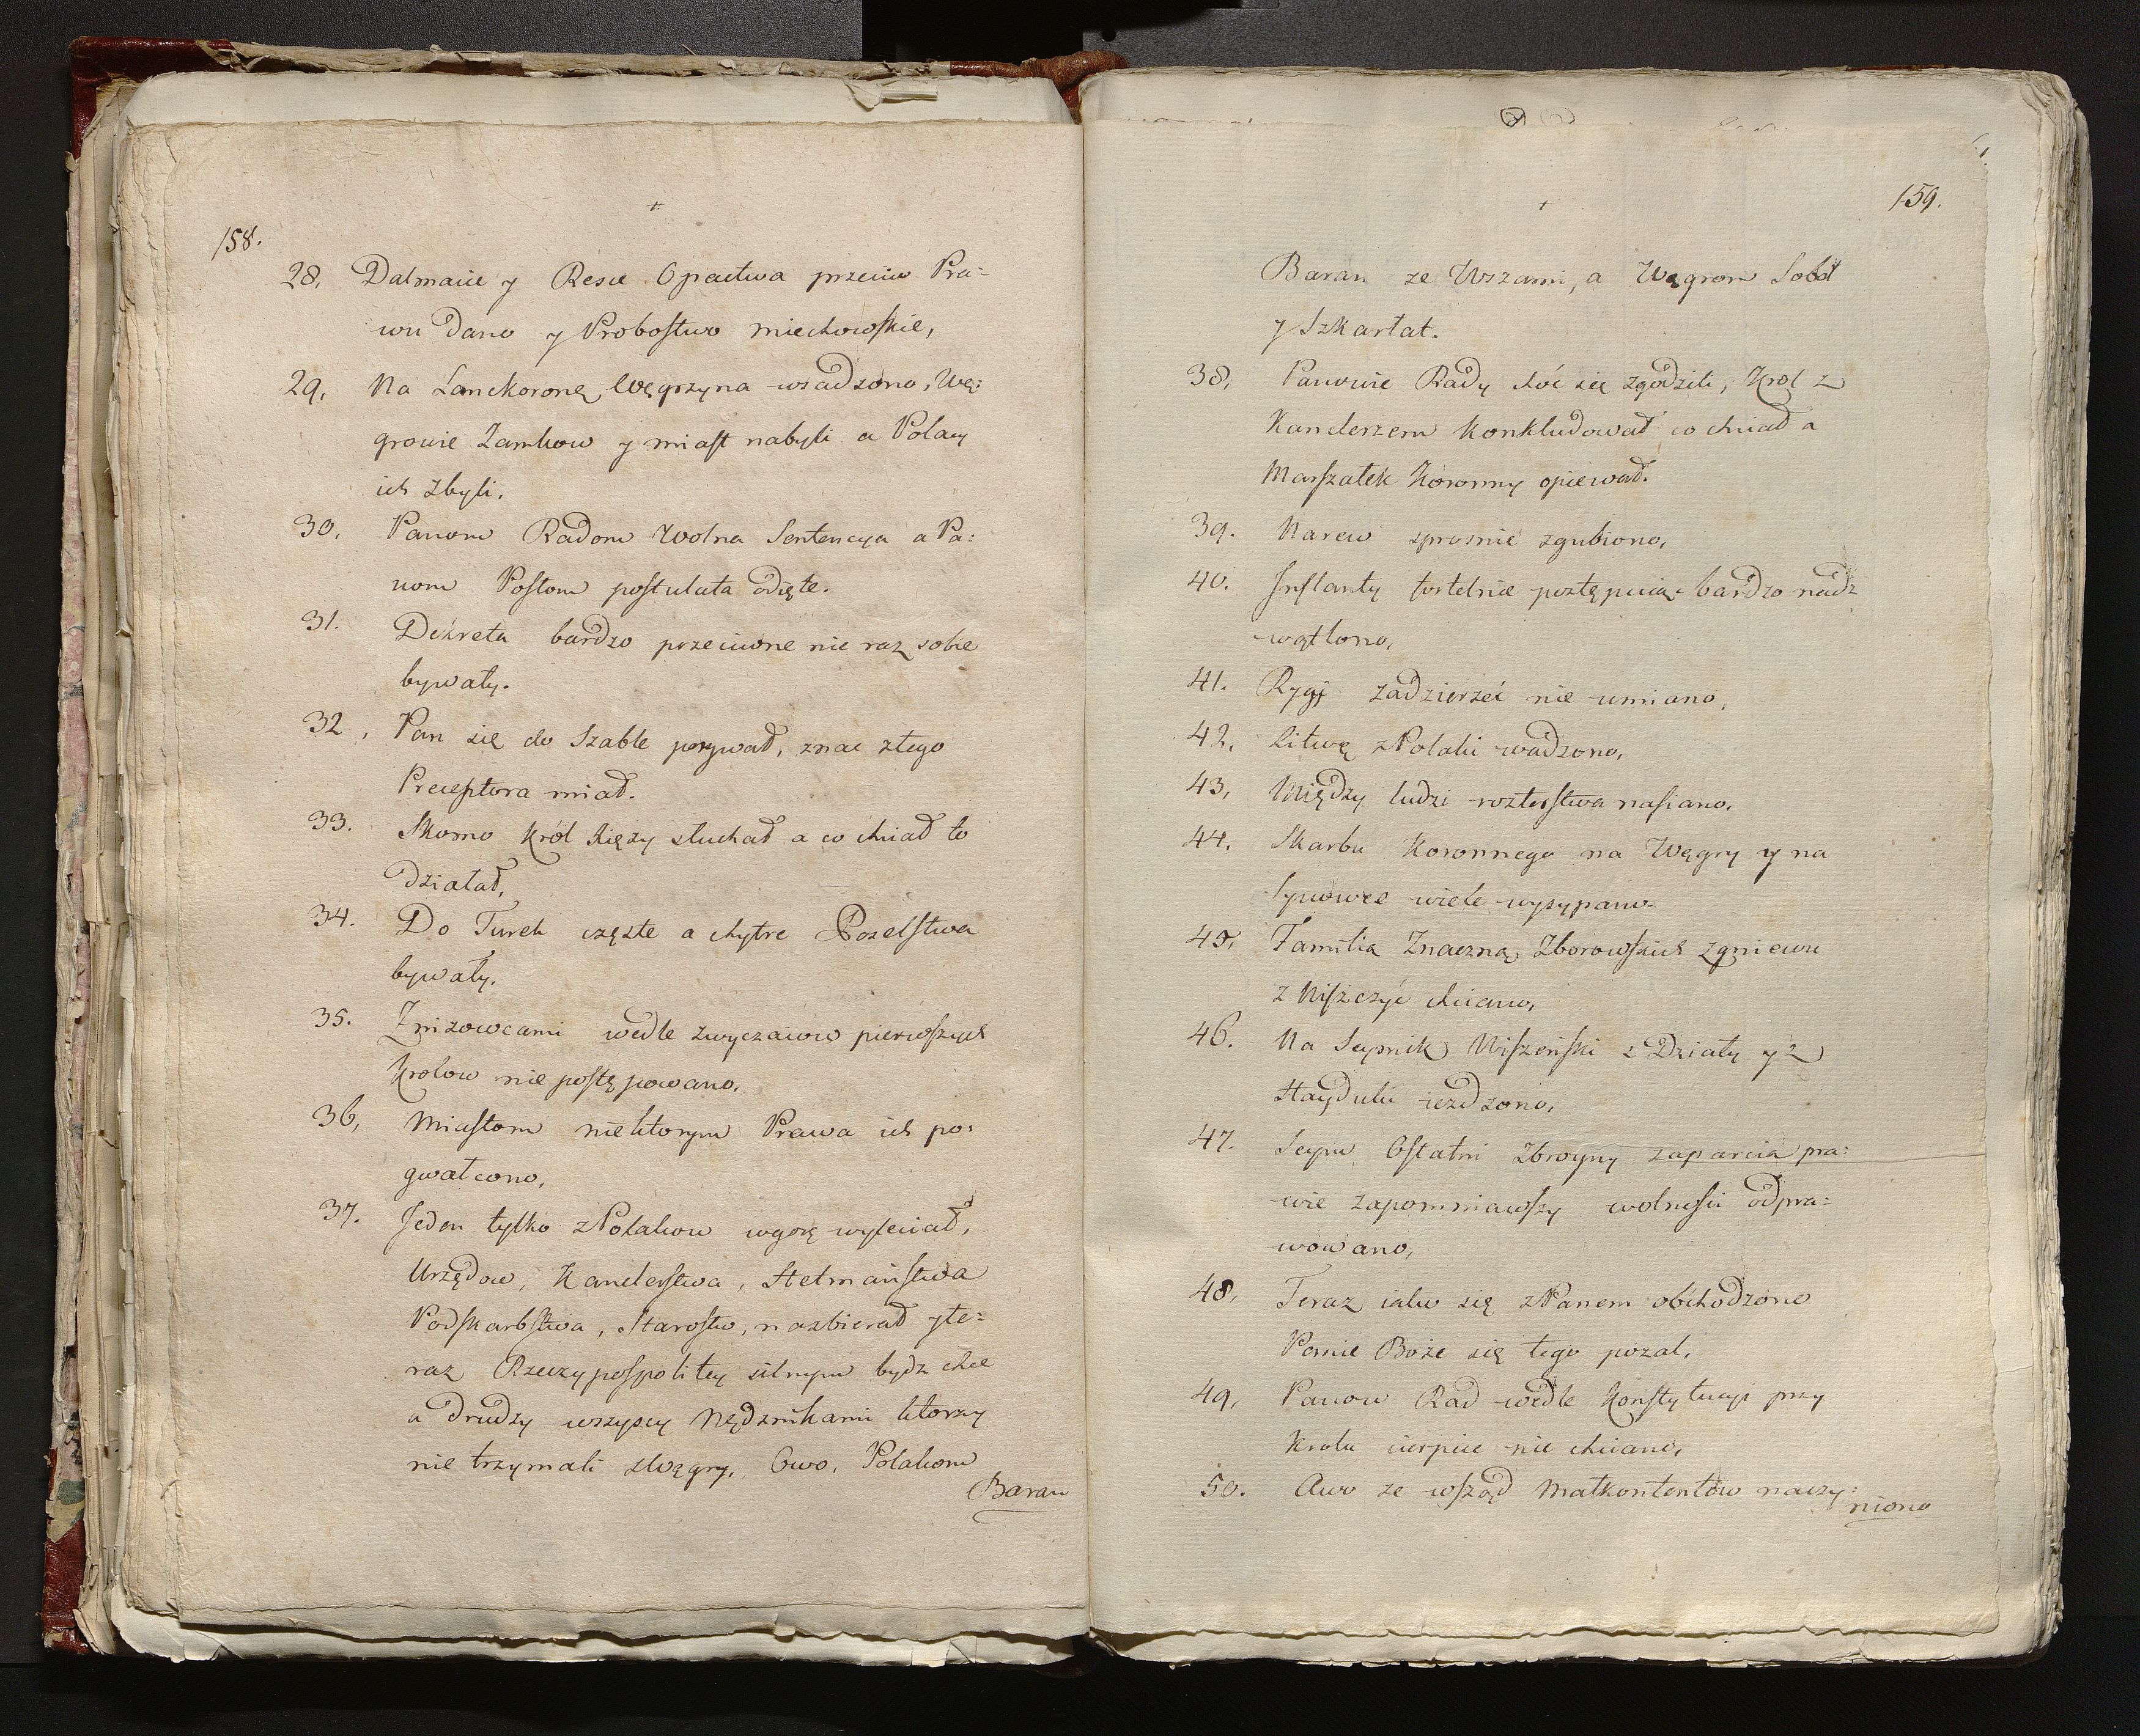 158.
28. Dalmacie y Resce Opactwa przeciw Pra=
wu dano y Probostwo miechowskie,
29. Na Lanckoronę Węgrzyna wsadzono, Wę=
growie Zamkow y miast nabyli a Polacy
ich zbyli.
30. Panom Radom Wolna Sentencya a Pa=
nom Posłom postulata odięte.
31. Dekreta bardzo przeciwne nie raz sobie
bywały.
32, Pan się do Szable porywał, znac złego
Preceptora miał.
33. Skomo król Xięży słuchał a co chciał to
działał,
34. Do Turek częste a chytre Poselstwa
bywały.
35. Znizowcami wedle zwyczaiow pierwszych
Krolow nie postępowano.
36, Miastom niektorym Prawa ich po=
gwałcono,
37. Jeden tylko z Polakow wgorę wyleciał,
Urzędow, Kanclerstwa, Hetmaństwa
Podskarbstwa, Starostw, nazbierał y te=
raz Rzeczypospolitey silnym bydz chce
a drudzy wszyscy Nędznikami ktorzy
nie trzymali z Węgry. Owo, Polakom
Baran
159.
Baran ze Wszami, a Węgrom Sobol
y Szkarłat.
38, Panowie Rady choć się zgodzili, Krol z
Kanclerzem konkludował co chciał a
Marszałek Koronny opiewał.
39. Narew sprosnie zgubiono,
40. Inflanty postępuiąc bardzo nad=
wątlono,
41. Rygi zadzierżeć nie umiano,
42, Litwę z Polaki wadzono,
43, Między ludzi rozterstwa nasiano,
44, Skarbu Koronnego na Węgry y na
Synowce wiele wysypano
45, Familią Znaczną Zborowskich z gniewu
zniszczyć chciano,
46. Na Seymik Wiszeński z Działy y z
Hayduki iezdzono,
47. Seym Ostatni Zbroyny zaparcia pra=
wie zapomniawszy wolności odpra=
wowano,
48, Teraz iako się z Panem obchodzono
Panie Boże się tego pozal,
49, Panow Rad wedle Konstytucyi przy
Krolu cierpiec nie chciano,
50. Awo ze wsząd Malkontentów naczy=
niono